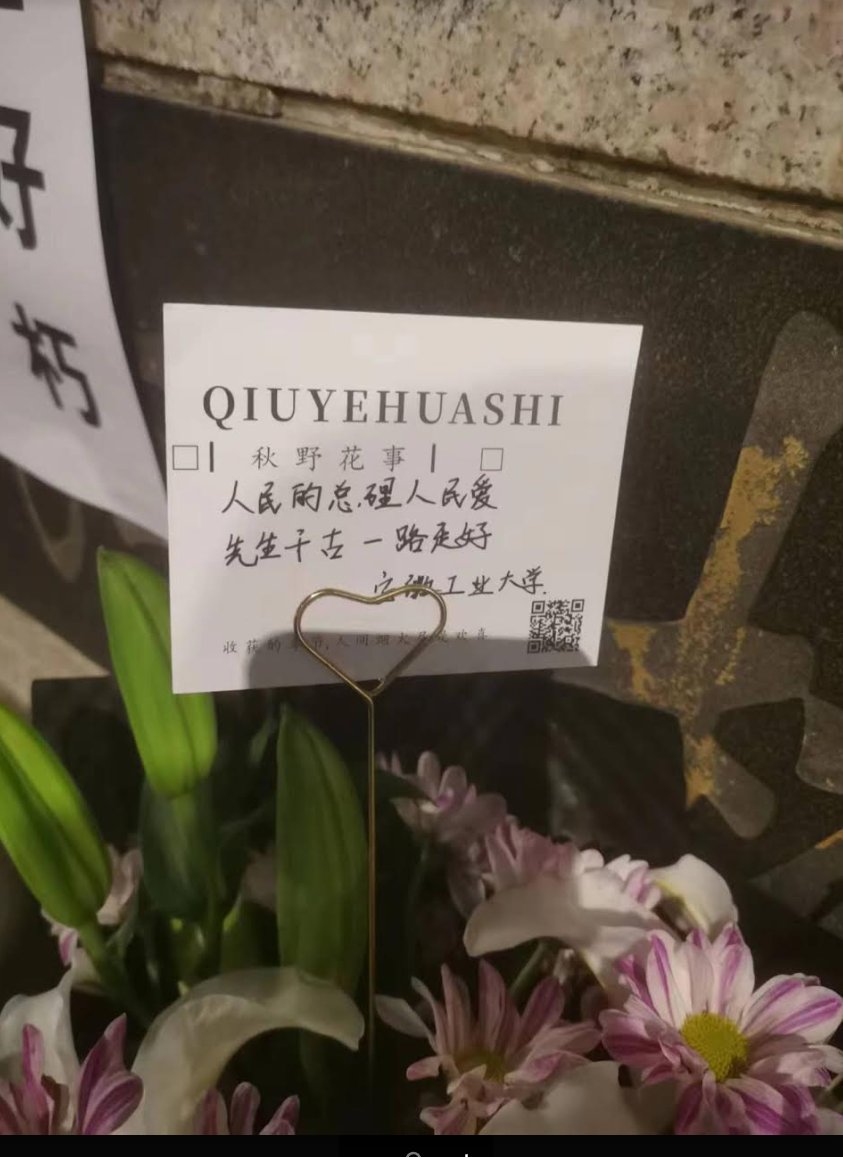 好
朽
QIUYEHUASHI
秋野花事
人民的总理人民爱
先生千古一路走好
安徽工业大学
收获的季节,人间
欢喜